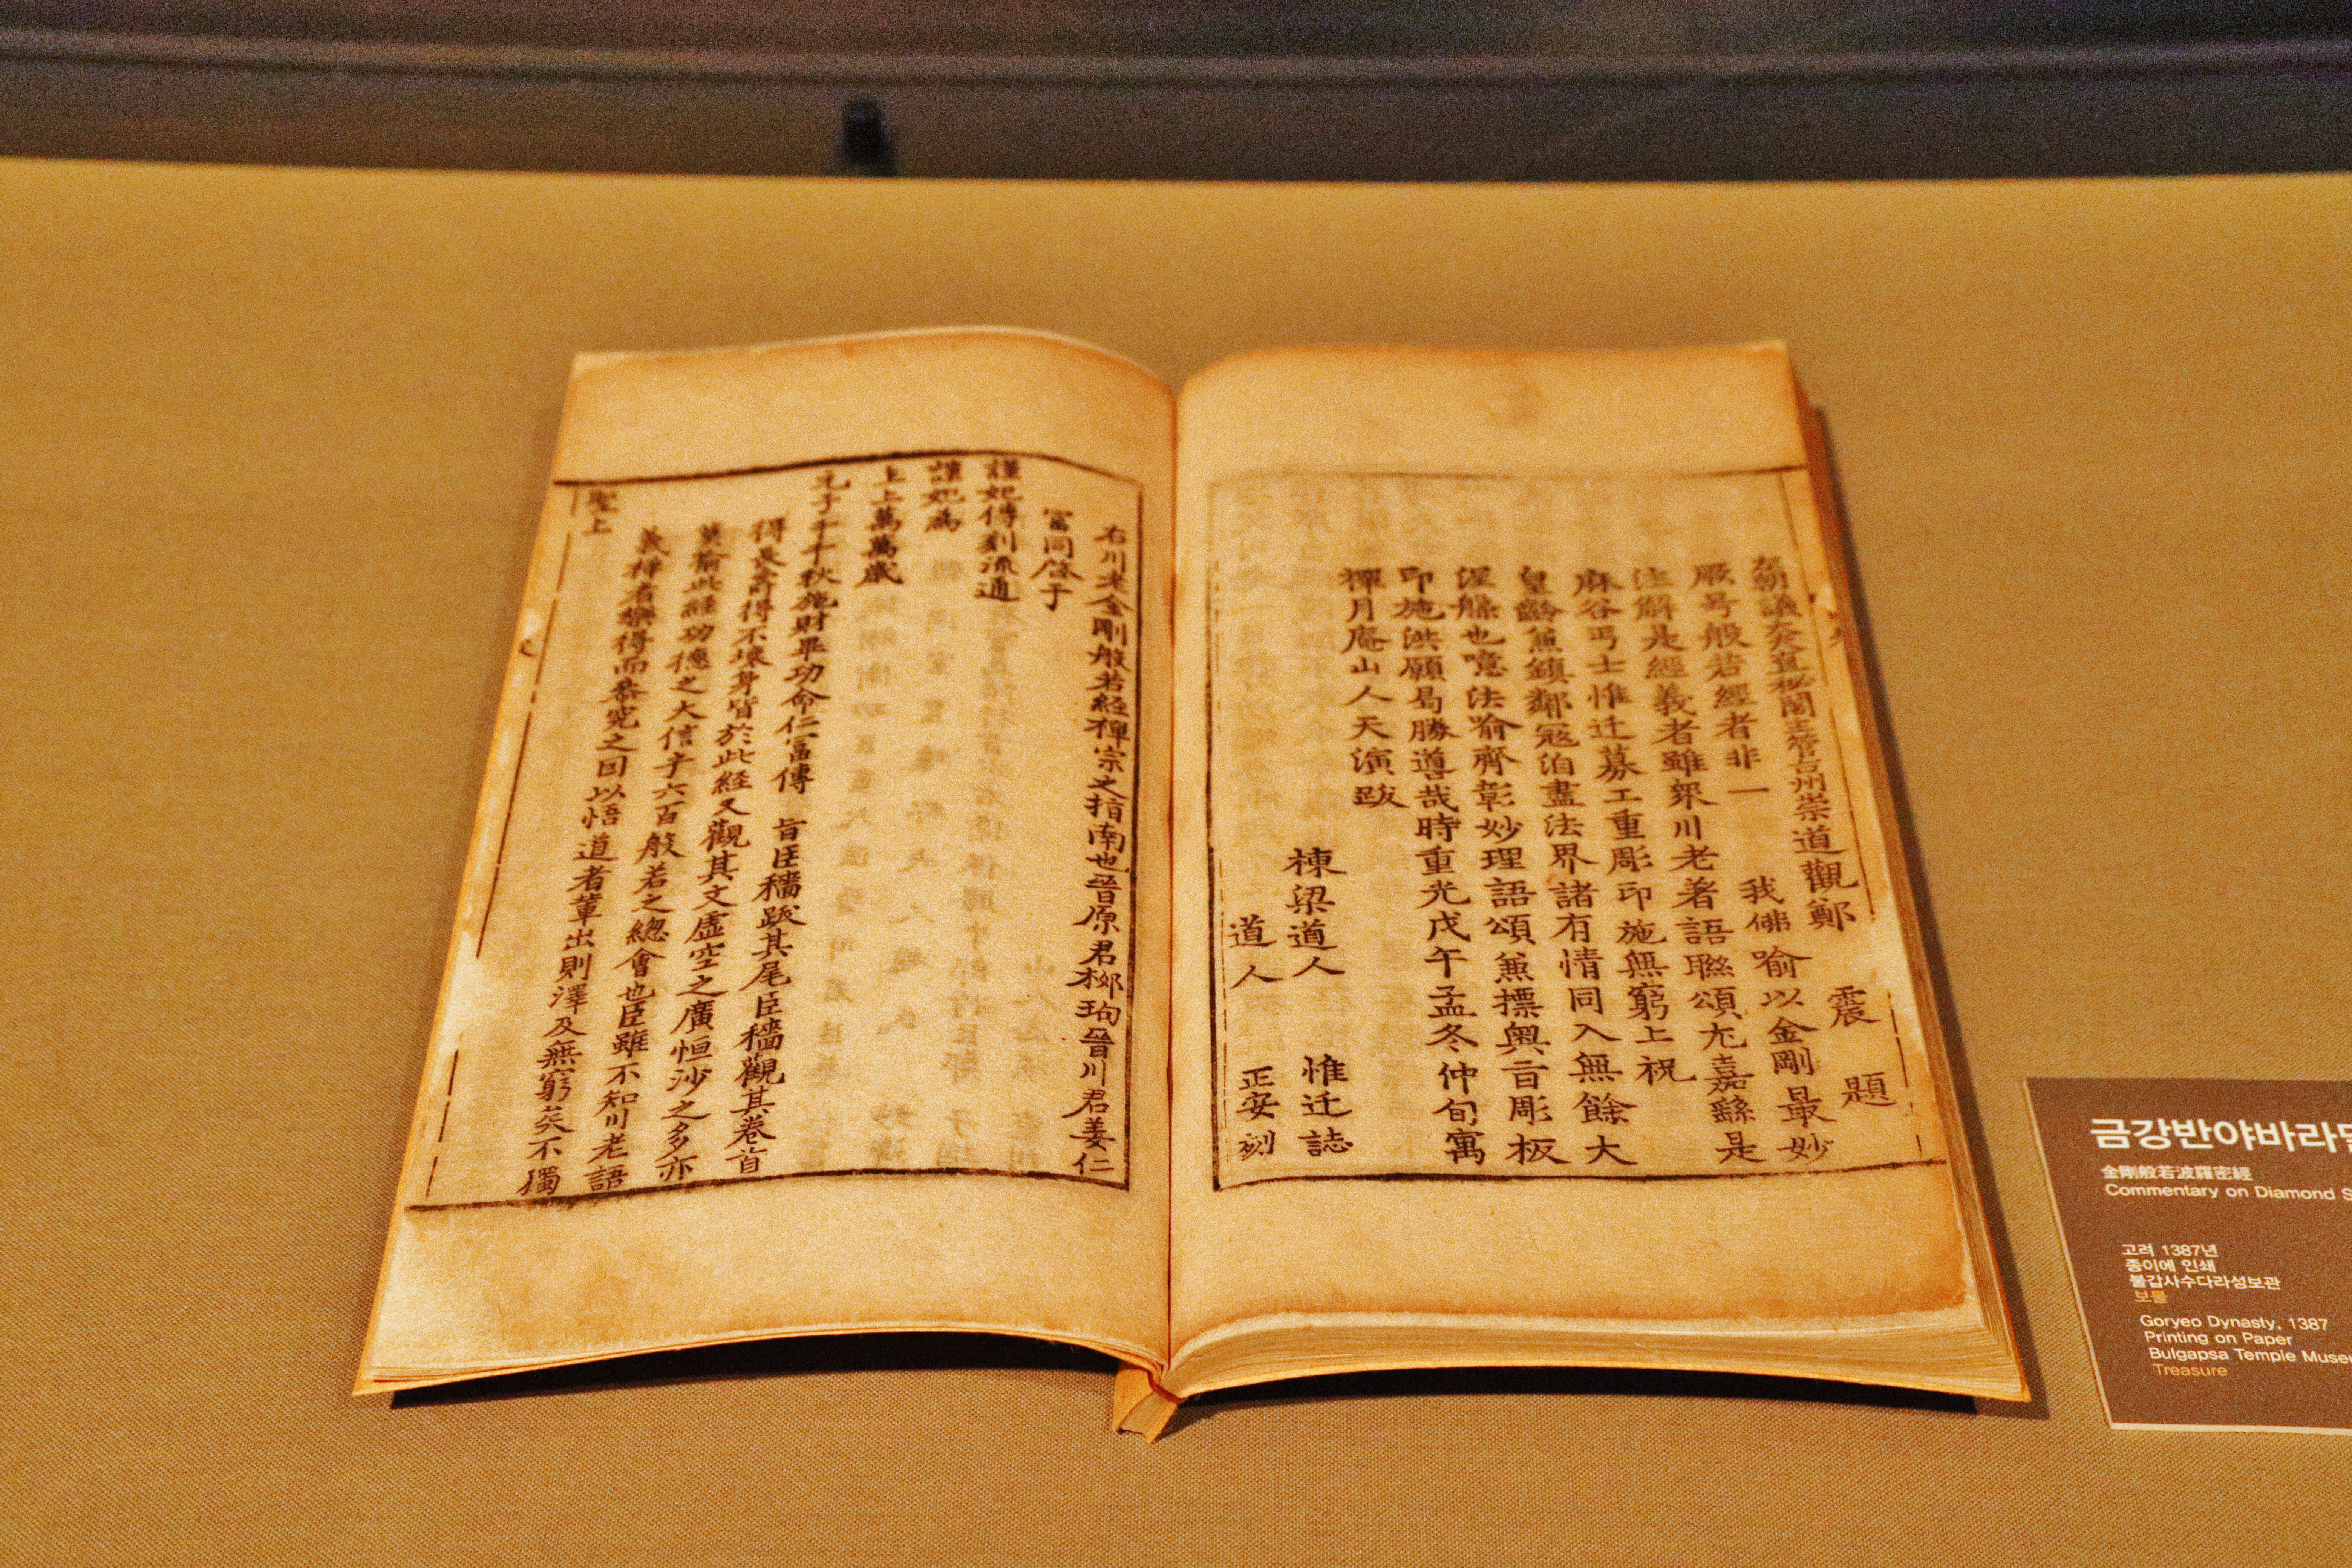 在朝議大夫直秘閣主管台州崇道觀鄭 震 題
厥号般若經者非一 我佛喻以金剛最妙
注解是經義者雖衆川老著語聮頌尤嘉繇是
麻谷丐士惟迁募工重彫印施無窮上祝
皇齡焦鎮鄰冦泊盡法界諸有情同入無餘大
涅槃也噫法喻齊彰妙理語頌兼摽奧旨彫板
印施洪願曷勝噵哉時重光戊午孟冬仲旬寓
禪月庵山人天演跋
棟梁道人 惟迁誌
道人 正安刻
右川老金剛般若経禪宗之指南也晉原君栁珣晉川君姜仁
冨同啓于
謹妃傳刻流通
謹妃為
上上萬萬歲
元子千千秋施財畢功命仁冨傳 旨臣穡跋其尾臣穡觀其卷首
得長壽得不壞身皆於此経又觀其文虛空之廣恒沙之多亦
莫喻此経功德之大信乎六百般若之總會也臣雖不知川老語
義持者樂得而叅究之因以悟道者軰出則澤及無窮矣不獨
聖上
금강반야바라밀
金剛般若波羅密經
Commentary on Diamond S
고려 1387년
종이에 인쇄
불갑사수다라성보관
보물
Goryeo Dynasty, 1387
Printing on Paper
Bulgapsa Temple Museu
Treasure